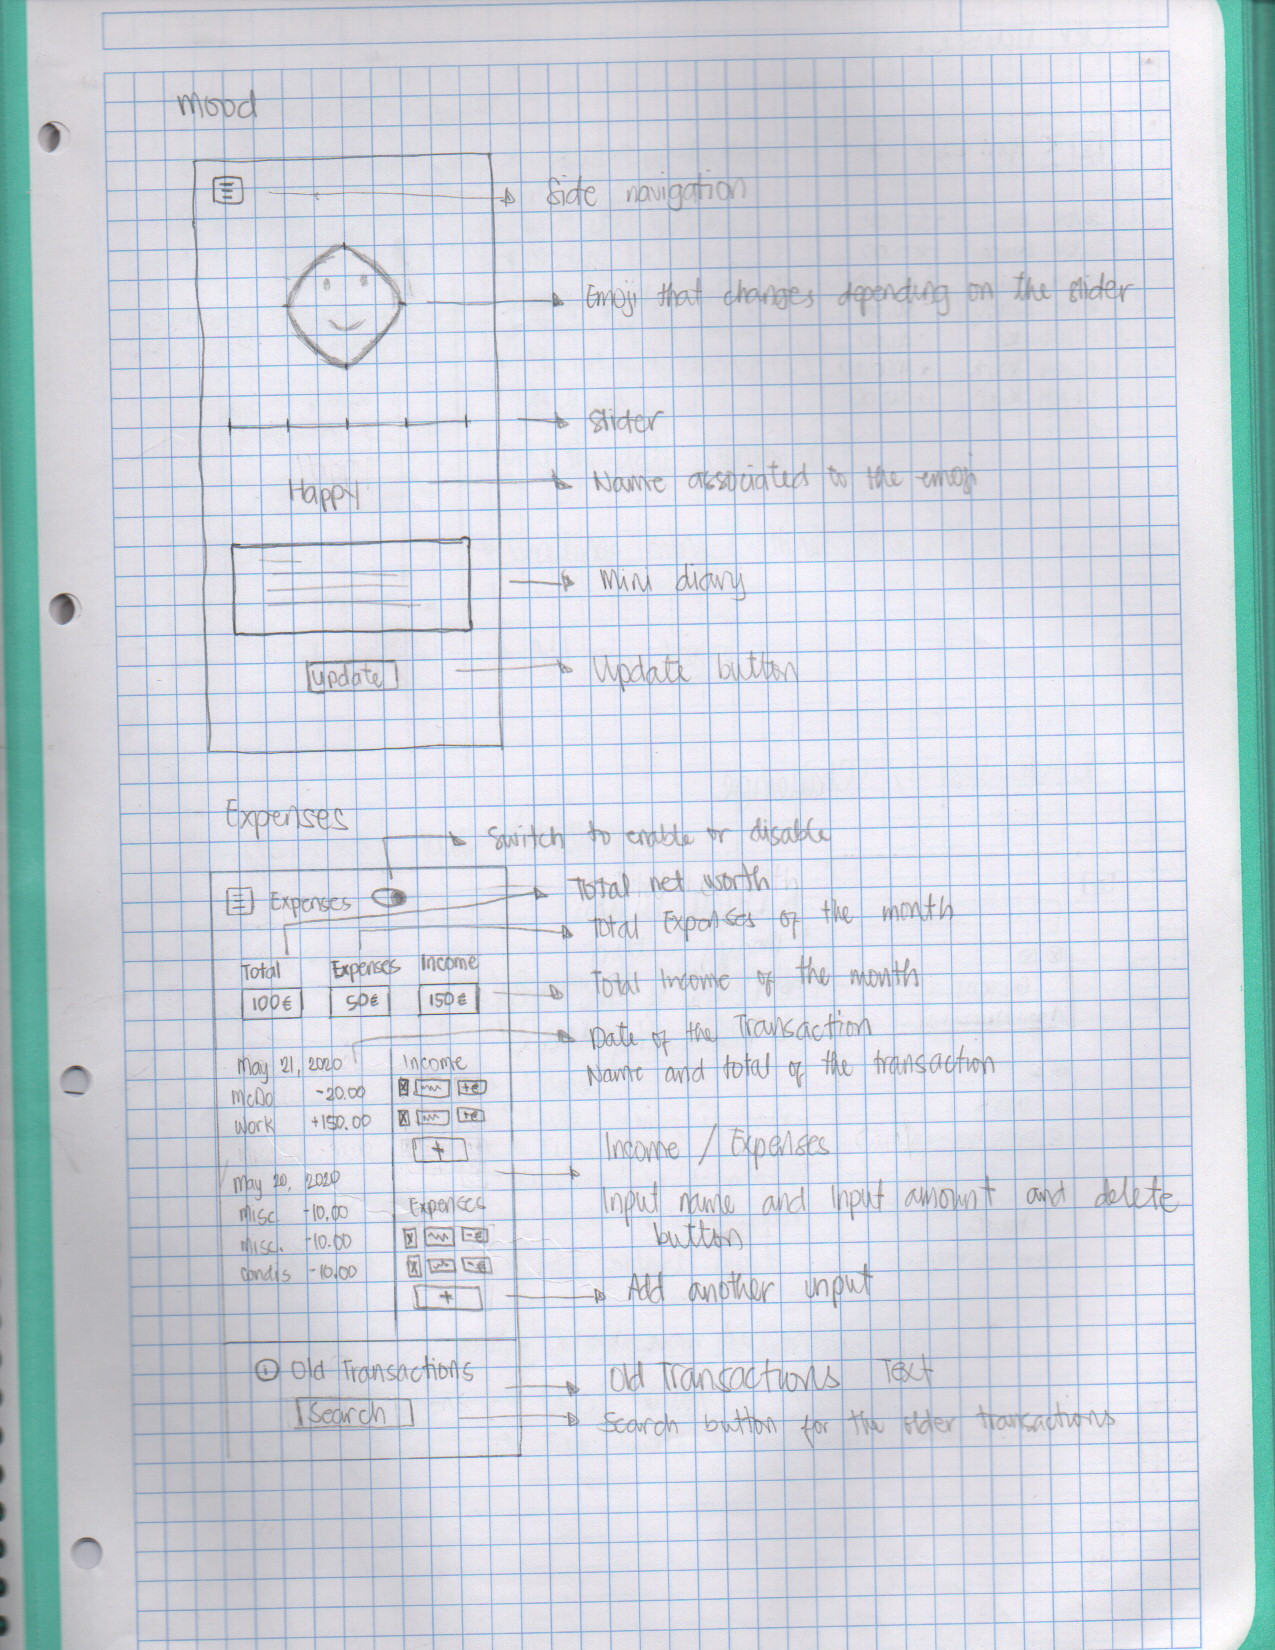 Mood
Side navigation
Emoji that changes depending on the slider
Slider
Happy
Name associated to the emoji
Mini diary
Update
Update button
Expenses
Switch to enable or disable
Expenses
Total net worth
Total Expenses of the month
Total Expenses Income
100€ 50€ 150€
Total Income of the month
Date of the Transaction
May 21, 2020 Income
Name and total of the transaction
McDo -20.00 x +€
Work +150.00 x +€
+
Income / Expenses
May 20, 2020
Misc. -10.00 Expenses
Input name and input amount and delete
button
Misc. -10.00 x -€
Condis -10.00 x -€
+
Add another input
Old Transactions
Old Transactions Text
Search
Search button for the older transactions